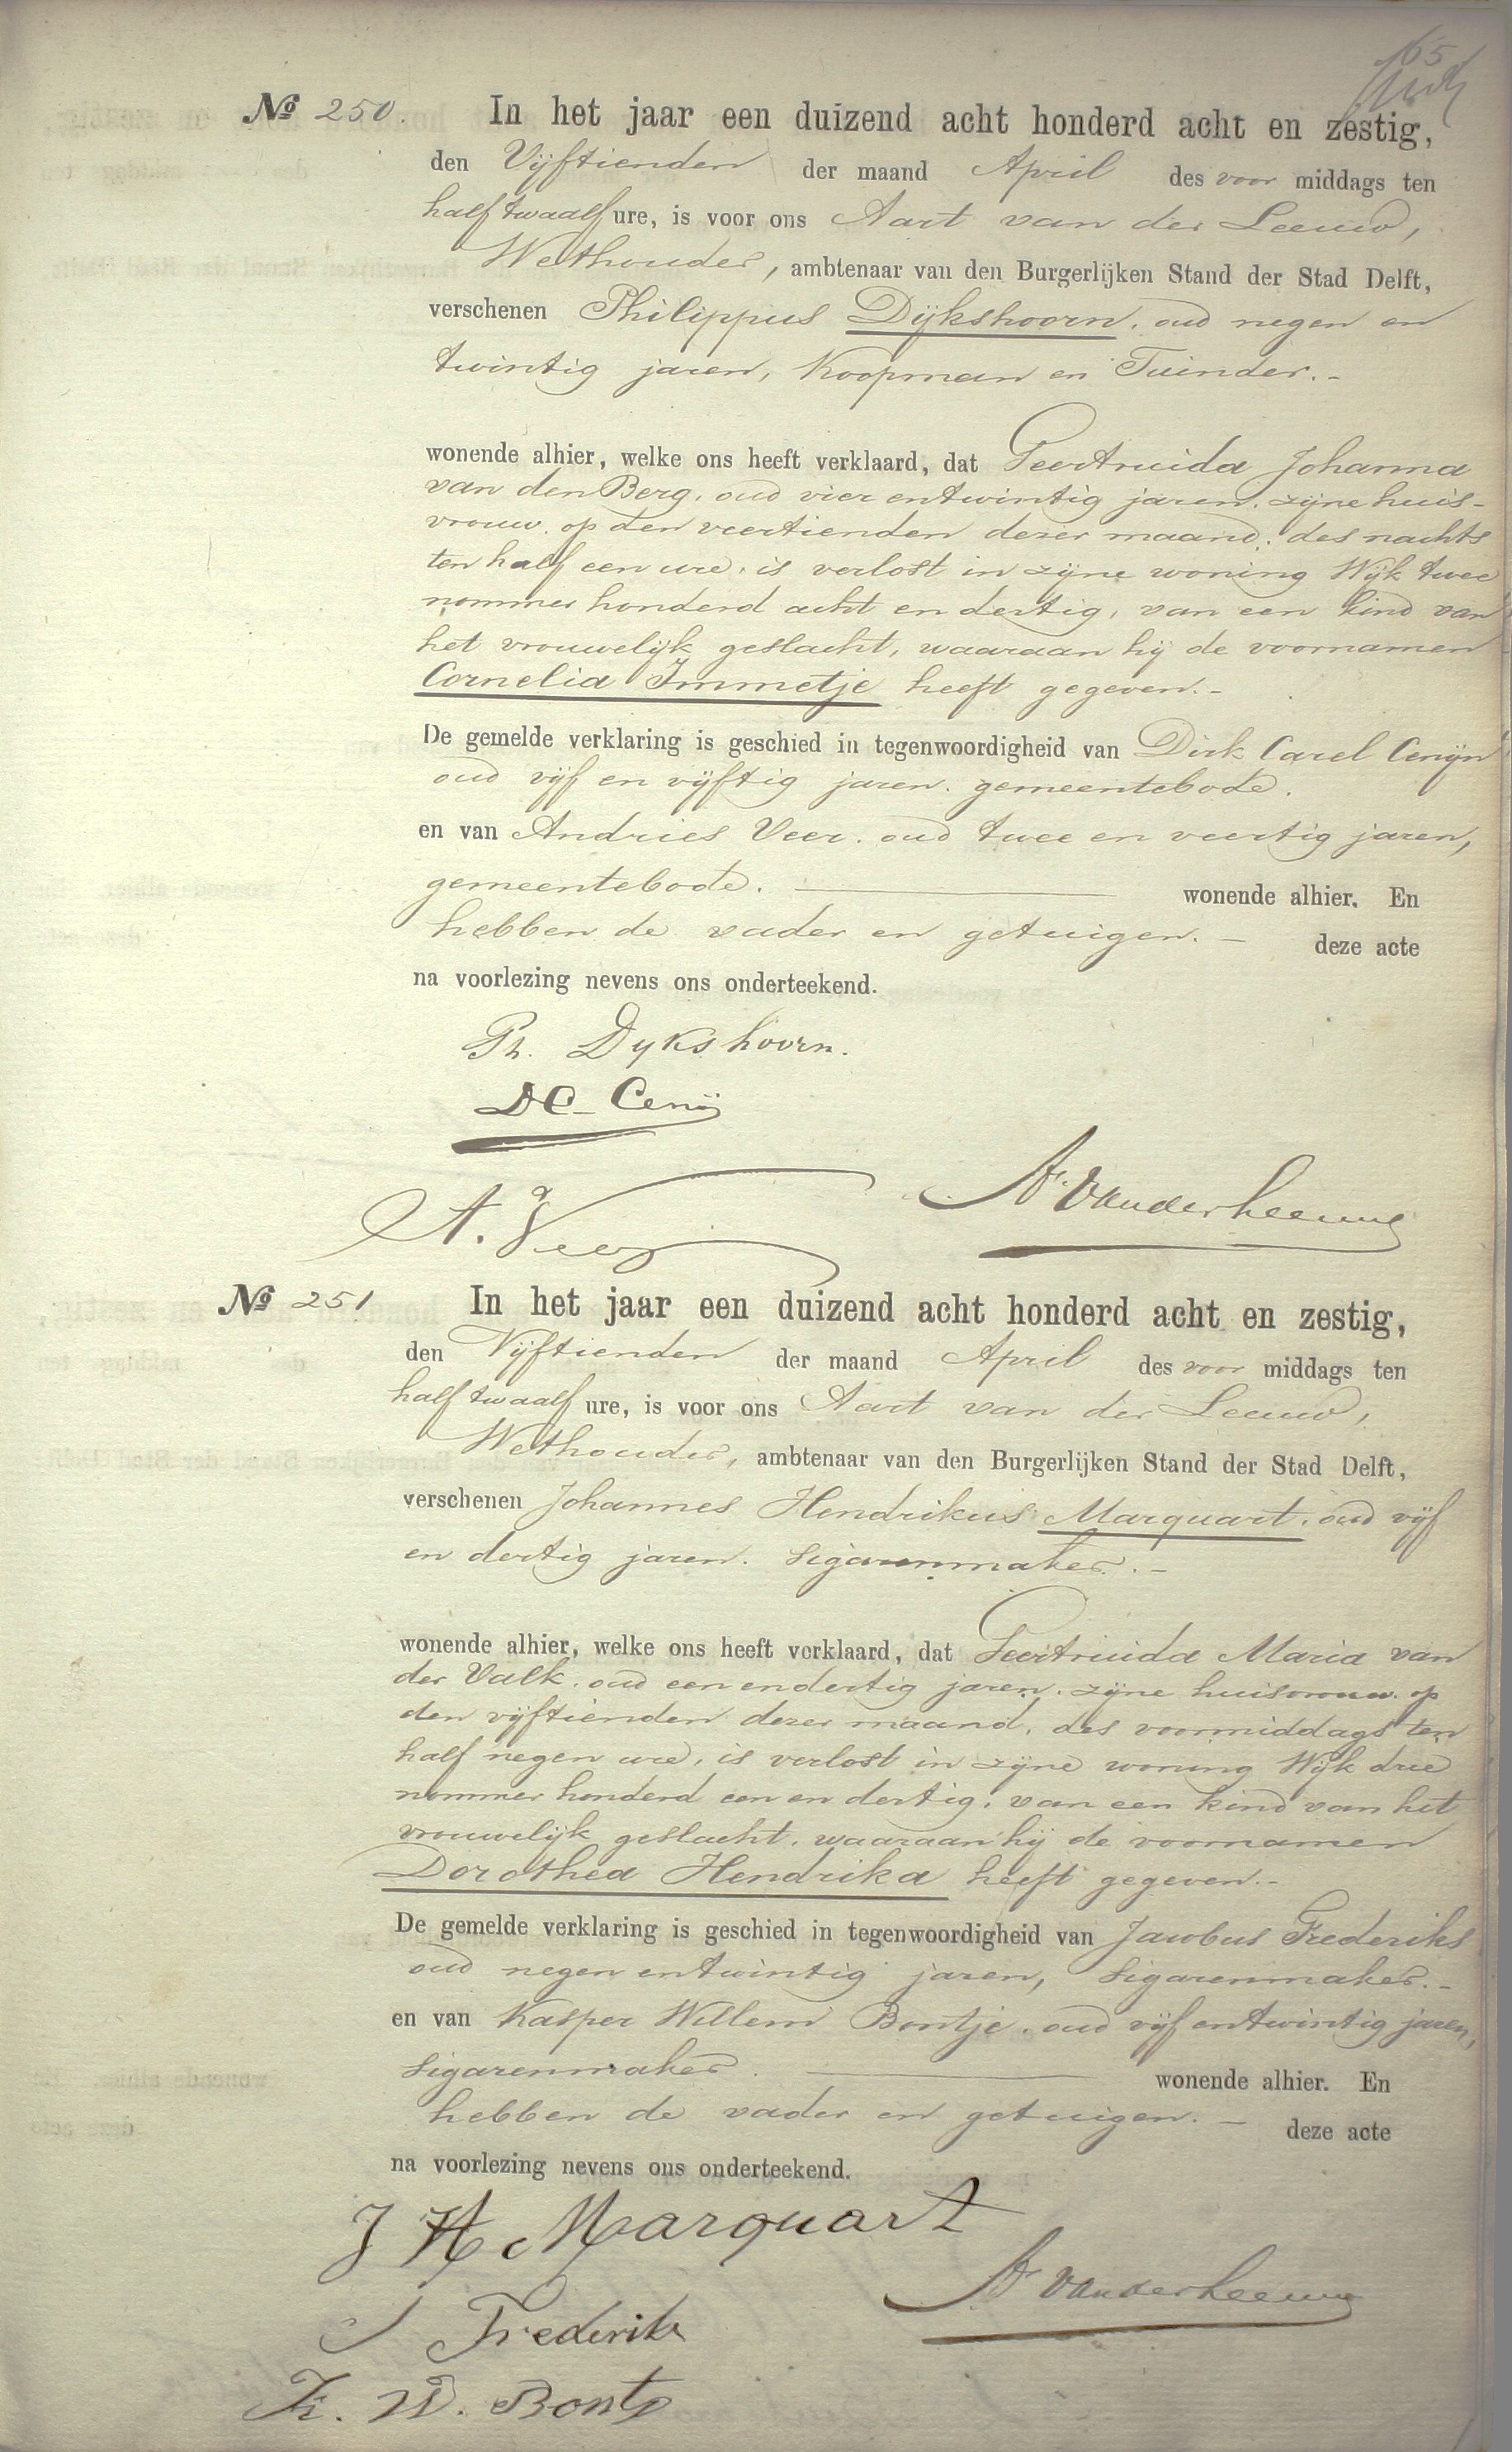 65
№ 250. In het jaar een duizend acht honderd acht en zestig,
den Vijftienden der maand April des voor middags ten
half twaalf ure, is voor ons Aart van der Leeuw,
Wethouder, ambtenaar van den Burgerlijken Stand der Stad Delft,
verschenen Philippus Dijkshoorn, oud negen en
twintig jaren, Koopman en Tuinder.-
wonende alhier, welke ons heeft verklaard, dat Geertruida Johanna
van den Berg, oud vier en twintig jaren, zijne huis-
vrouw, op den veertienden dezer maand, des nachts
ten half een ure, is verlost in zijne woning Wijk twee
nommer honderd acht en dertig, van een kind van
het vrouwelijk geslacht, waaraan hij de voornamen
Cornelia Immetje heeft gegeven.-
De gemelde verklaring is geschied in tegenwoordigheid van Dirk Carel Cenijn
oud vijf en vijftig jaren, gemeentebode.
en van Andries Veer, oud twee en veertig jaren,
gemeentebode. wonende alhier. En
hebben de vader en getuigen.- deze acte
na voorlezing nevens ons onderteekend.
Ph. Dykshoorn.
DC Cenij
A. Veer
A. van der Leeuw
№ 251 In het jaar een duizend acht honderd acht en zestig,
den Vijftienden der maand April des voor middags ten
half twaalf ure, is voor ons Aart van der Leeuw,
Wethouder, ambtenaar van den Burgerlijken Stand der Stad Delft,
verschenen Johannes Hendrikus Marquart, oud vijf
en dertig jaren, sigarenmaker.-
wonende alhier, welke ons heeft verklaard, dat Geertruida Maria van
der Valk, oud een en dertig jaren, zijne huisvrouw, op
den vijftienden dezer maand, des voormiddags ten
half negen ure, is verlost in zijne woning Wijk drie
nommer honderd een en dertig, van een kind van het
vrouwelijk geslacht, waaraan hij de voornamen
Dorothea Hendrika heeft gegeven.-
De gemelde verklaring is geschied in tegenwoordigheid van Jacobus Frederiks
oud negen en twintig jaren, sigarenmaker.-
en van Kasper Willem Bontje, oud vijf en twintig jaren,
sigarenmaker. wonende alhier. En
hebben de vader en getuigen.- deze acte
na voorlezing nevens ons onderteekend.
J H Marquart
A. van der Leeuw
J Frederiks
K. W. Bontje